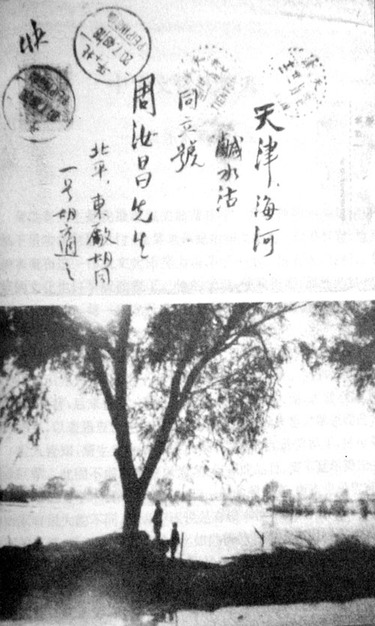 天津、海河
鹹水沽
同立號
周汝昌先生
北平、東廠胡同
一号胡適之
快